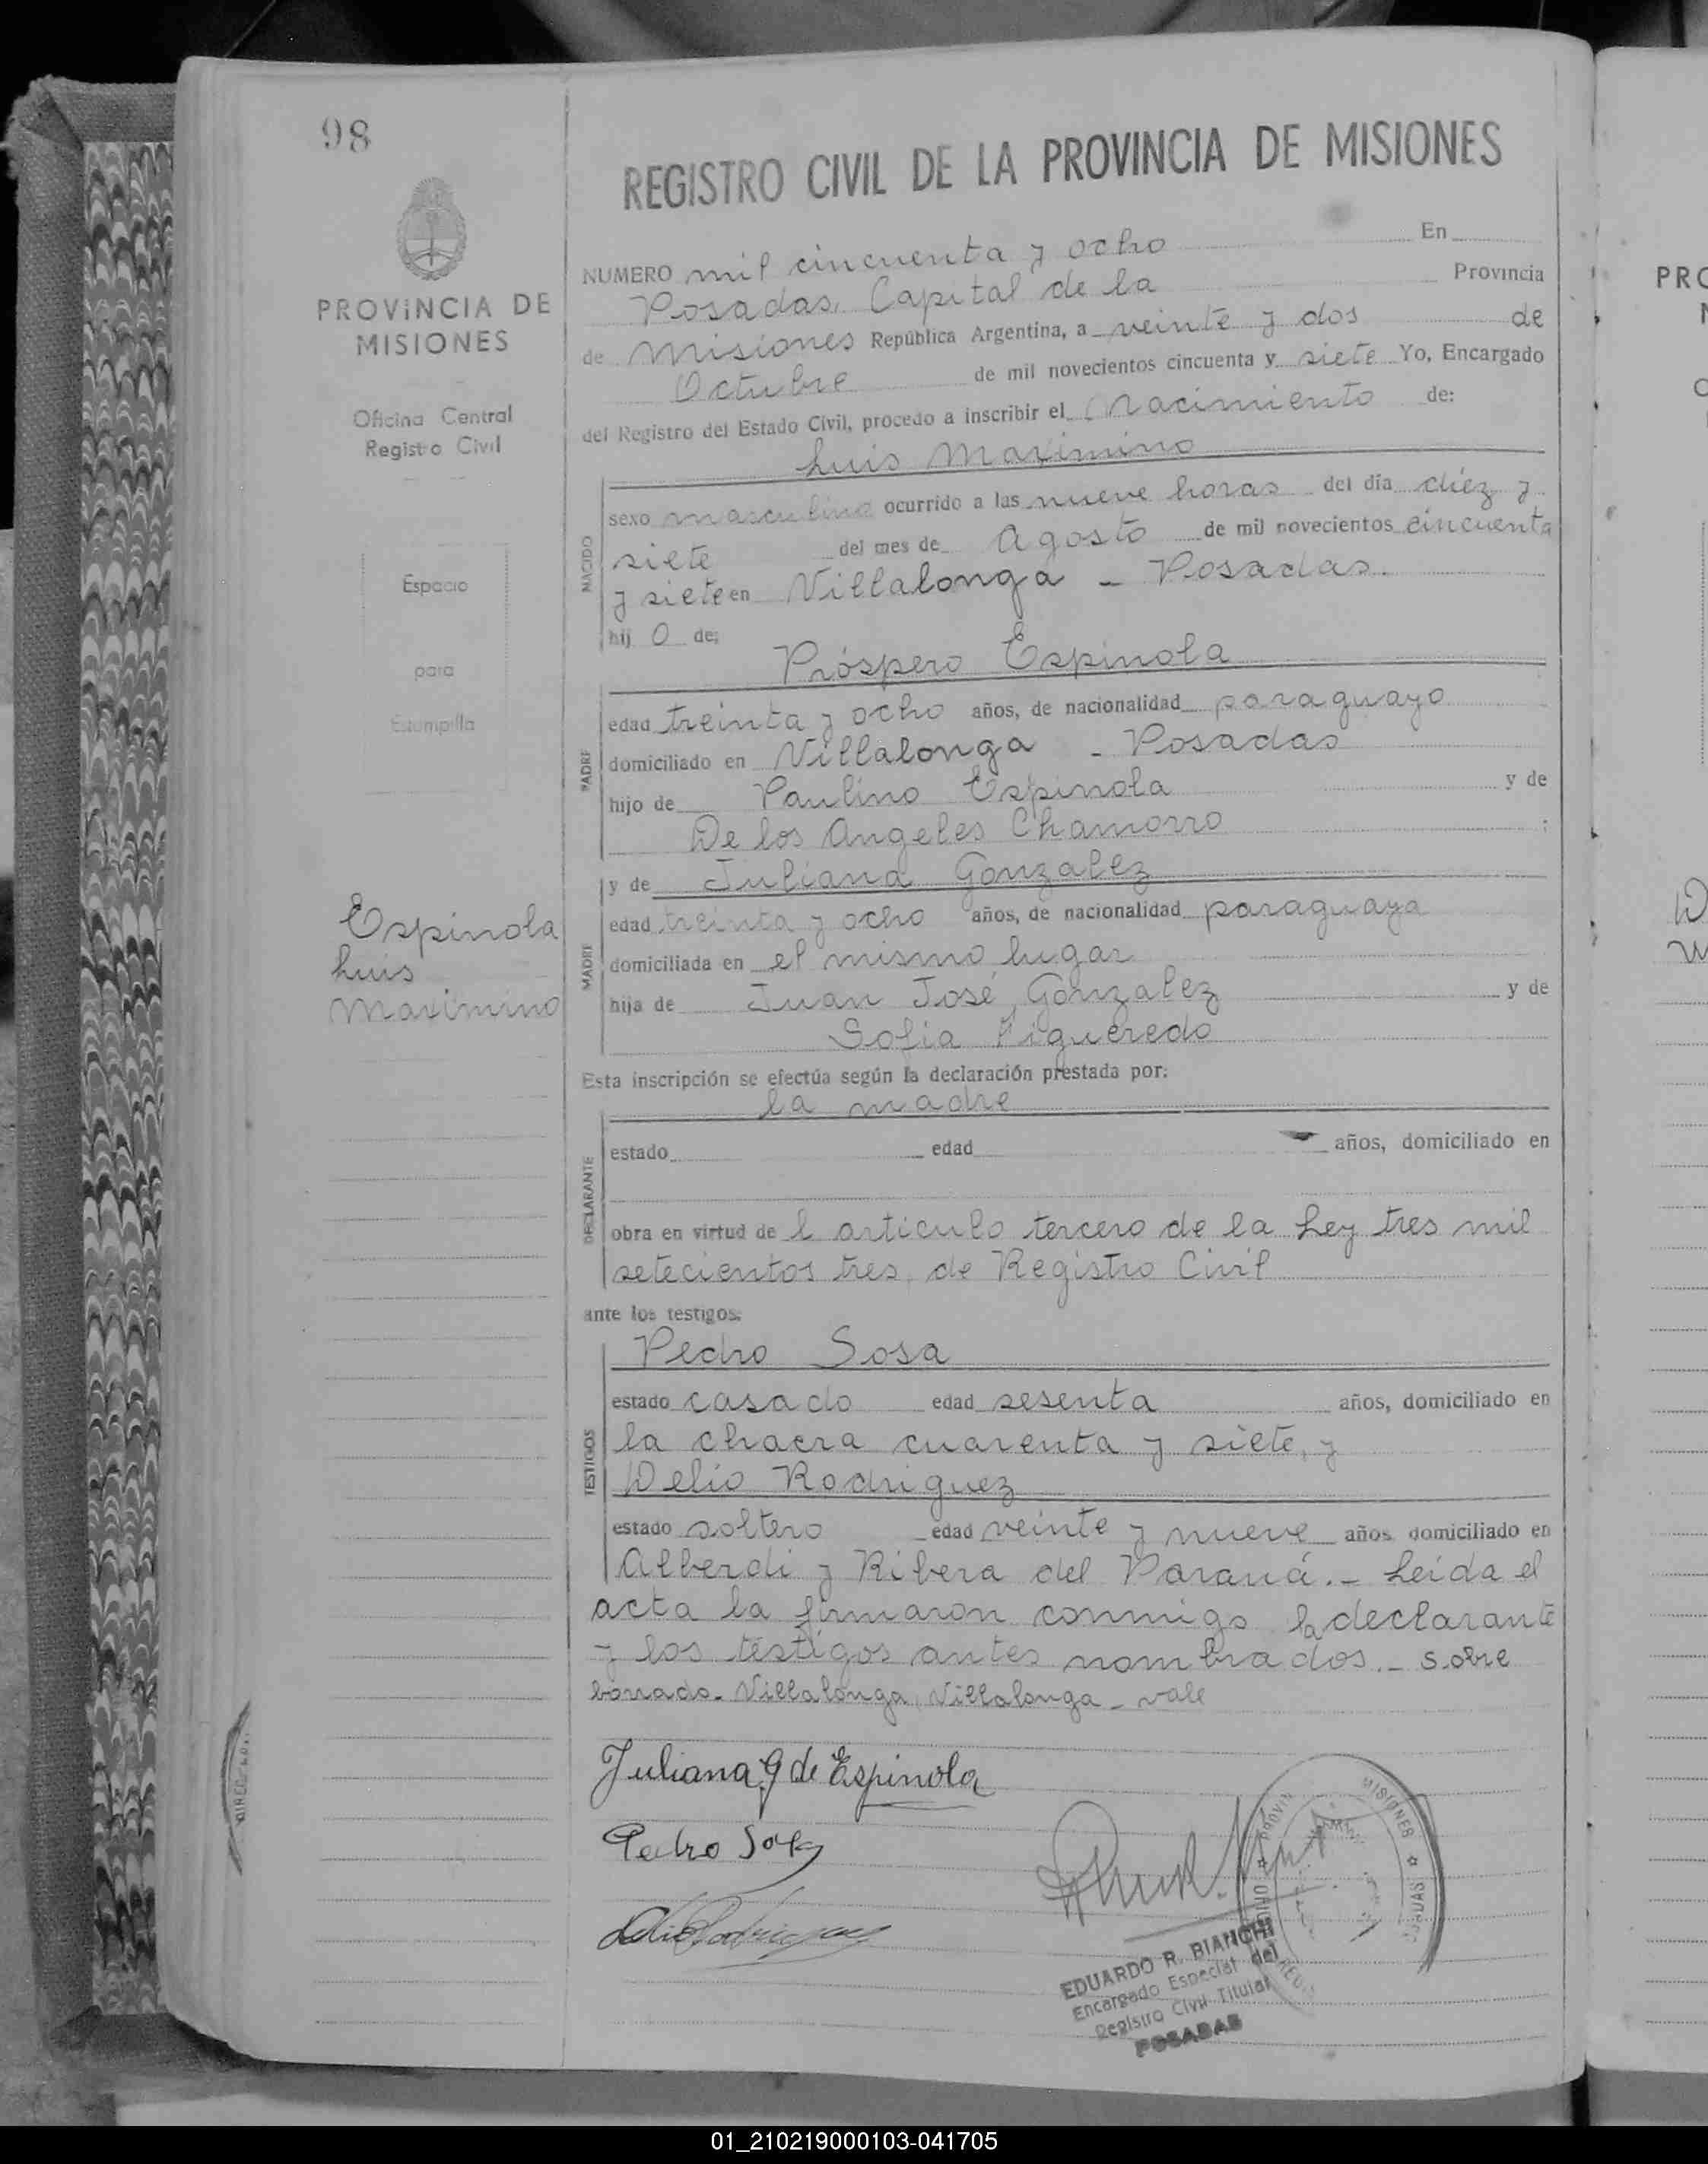 98
REGISTRO CIVIL DE LA PROVINCIA DE MISIONES
PROVINCIA DE
MISIONES
Oficina Central
Registro Civil
Espacio
para
Estampilla
Espinola
Luis
Maximino
NUMERO mil cincuenta y ocho En
Posadas, Capital de la Provincia
de Misiones República Argentina, a veinte y dos de
Octubre de mil novecientos cincuenta y siete Yo, Encargado
del Registro del Estado Civil, procedo a inscribir el Nacimiento de:
Luis Maximino
NACIDO
sexo masculino ocurrido a las nueve horas del día diéz y
siete del mes de Agosto de mil novecientos cincuenta
y siete en Villalonga - Posadas.
hij o de:
Próspero Espinola
PADRE
edad treinta y ocho años, de nacionalidad paraguayo
domiciliado en Villalonga - Posadas
hijo de Paulino Espinola y de
De los Angeles Chamorro
y de Juliana Gonzalez
MADRE
edad treinta y ocho años, de nacionalidad paraguaya
domiciliada en el mismo lugar
hija de Juan José Gonzalez y de
Sofia Figueredo
Esta inscripción se efectúa según la declaración prestada por:
la madre
DECLARANTE
estado edad años, domiciliado en
obra en virtud de l articulo tercero de la Ley tres mil
setecientos tres, de Registro Civil
ante los testigos:
Pedro Sosa
TESTIGOS
estado casado edad sesenta años, domiciliado en
la chacra cuarenta y siete, y
Delio Rodriguez
estado soltero edad veinte y nueve años domiciliado en
Alberdi y Ribera del Paraná.- Leída el
acta la firmaron conmigo la declarante
y los testigos antes nombrados.- Sobre
borrado- Villalonga, Villalonga - vale
Juliana G de Espinola
Pedro Sosa
Delio Rodriguez
MISIONES
EDUARDO R. BIANCHI
Encargado Especial del
Registro Civil Titular
POSADAS
PRO
01_210219000103-041705